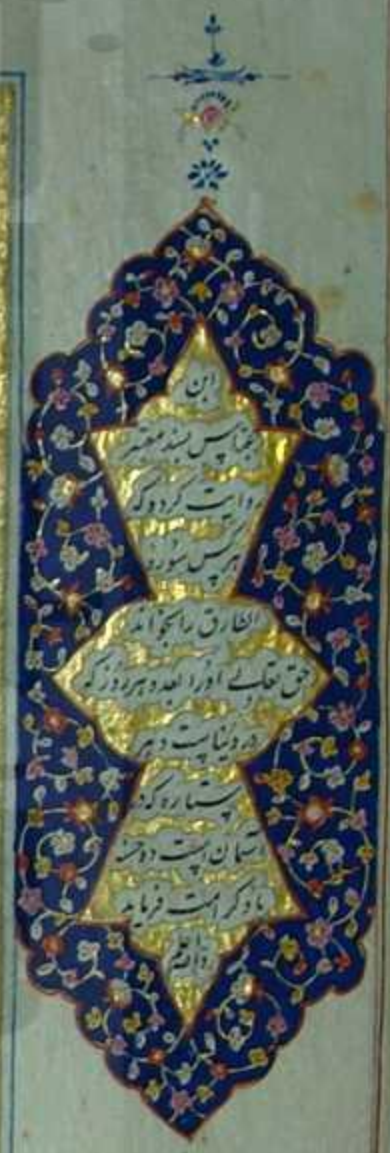 ابن
عباس بسند معتبر
روایت کرده که
هرکس سوره
الطارق را بخواند
حق تعالی او را بعدد هر روز که
در دنیاست و هر
ستاره که در
آسمان است ده حسنه
باو کرامت فرماید
والله اعلم